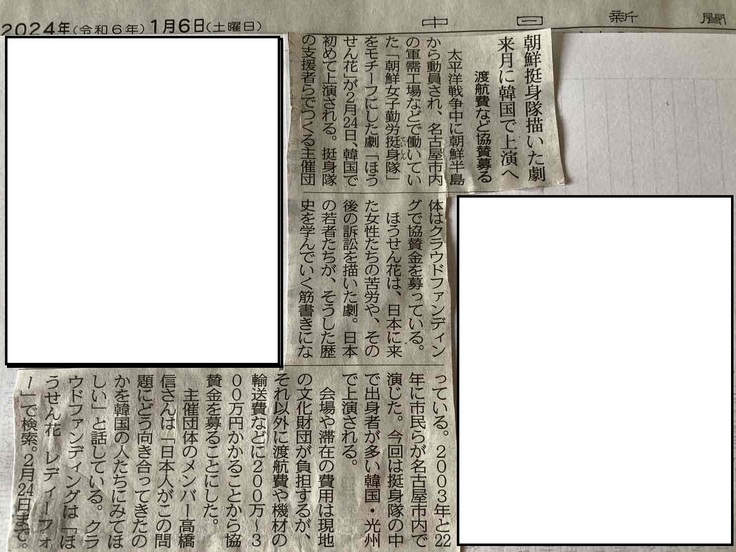 2024年(令和6年)1月6日(土曜日)
中日新聞
朝鮮挺身隊描いた劇
来月に韓国で上演へ
渡航費など協賛募る
太平洋戦争中に朝鮮半島
から動員され、名古屋市内
の軍需工場などで働いてい
た「朝鮮女子勤労挺身隊」
をモチーフにした劇「ほう
せん花」が2月24日、韓国で
初めて上演される。挺身隊
の支援者らでつくる主催団
体はクラウドファンディン
グで協賛金を募っている。
ほうせん花は、日本に来
た女性たちの苦労や、その
後の訴訟を描いた劇。日本
の若者たちが、そうした歴
史を学んでいく筋書きにな
っている。2003年と22
年に市民らが名古屋市内で
演じた。今回は挺身隊の中
で出身者が多い韓国・光州
で上演される。
会場や滞在の費用は現地
の文化財団が負担するが、
それ以外に渡航費や機材の
輸送費などに200万~3
00万円かかることから協
賛金を募ることにした。
主催団体のメンバー高橋
信さんは「日本人がこの問
題にどう向き合ってきたの
かを韓国の人たちにみてほ
しい」と話している。クラ
ウドファンディングは「ほ
うせん花 レディーフォ
ー」で検索。2月24日まで。